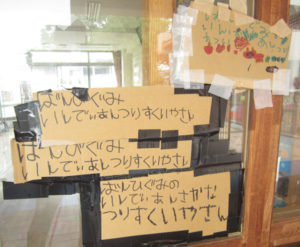 ばんびぐみ
いんでぃあんつりすくいやさん
ばんびぐみ
いんでぃあんつりすくいやさん
ばんびぐみの
いんでぃあんさかな
つりすくいやさん